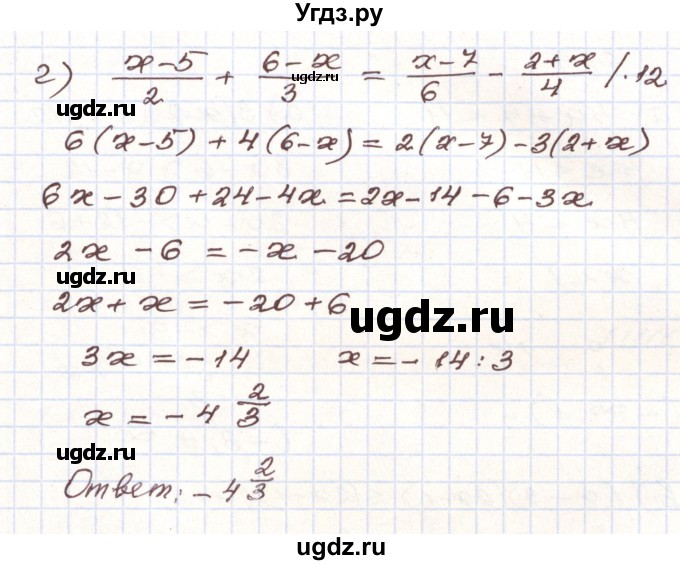 Угдз.ру
г) (x-5)/2 + (6-x)/3 = (x-7)/6 - (2+x)/4 /·12
ugdz.ru
ugdz.ru
6(x-5)+4(6-x)=2(x-7)-3(2+x)
6x-30+24-4x=2x-14-6-3x
2x-6=-x-20
ugdz.ru
2x+x=-20+6
ugdz.ru
3x=-14 x=-14:3
x=-4 2/3
ugdz.ru
Ответ: -4 2/3
ugdz.ru
ugdz.ru